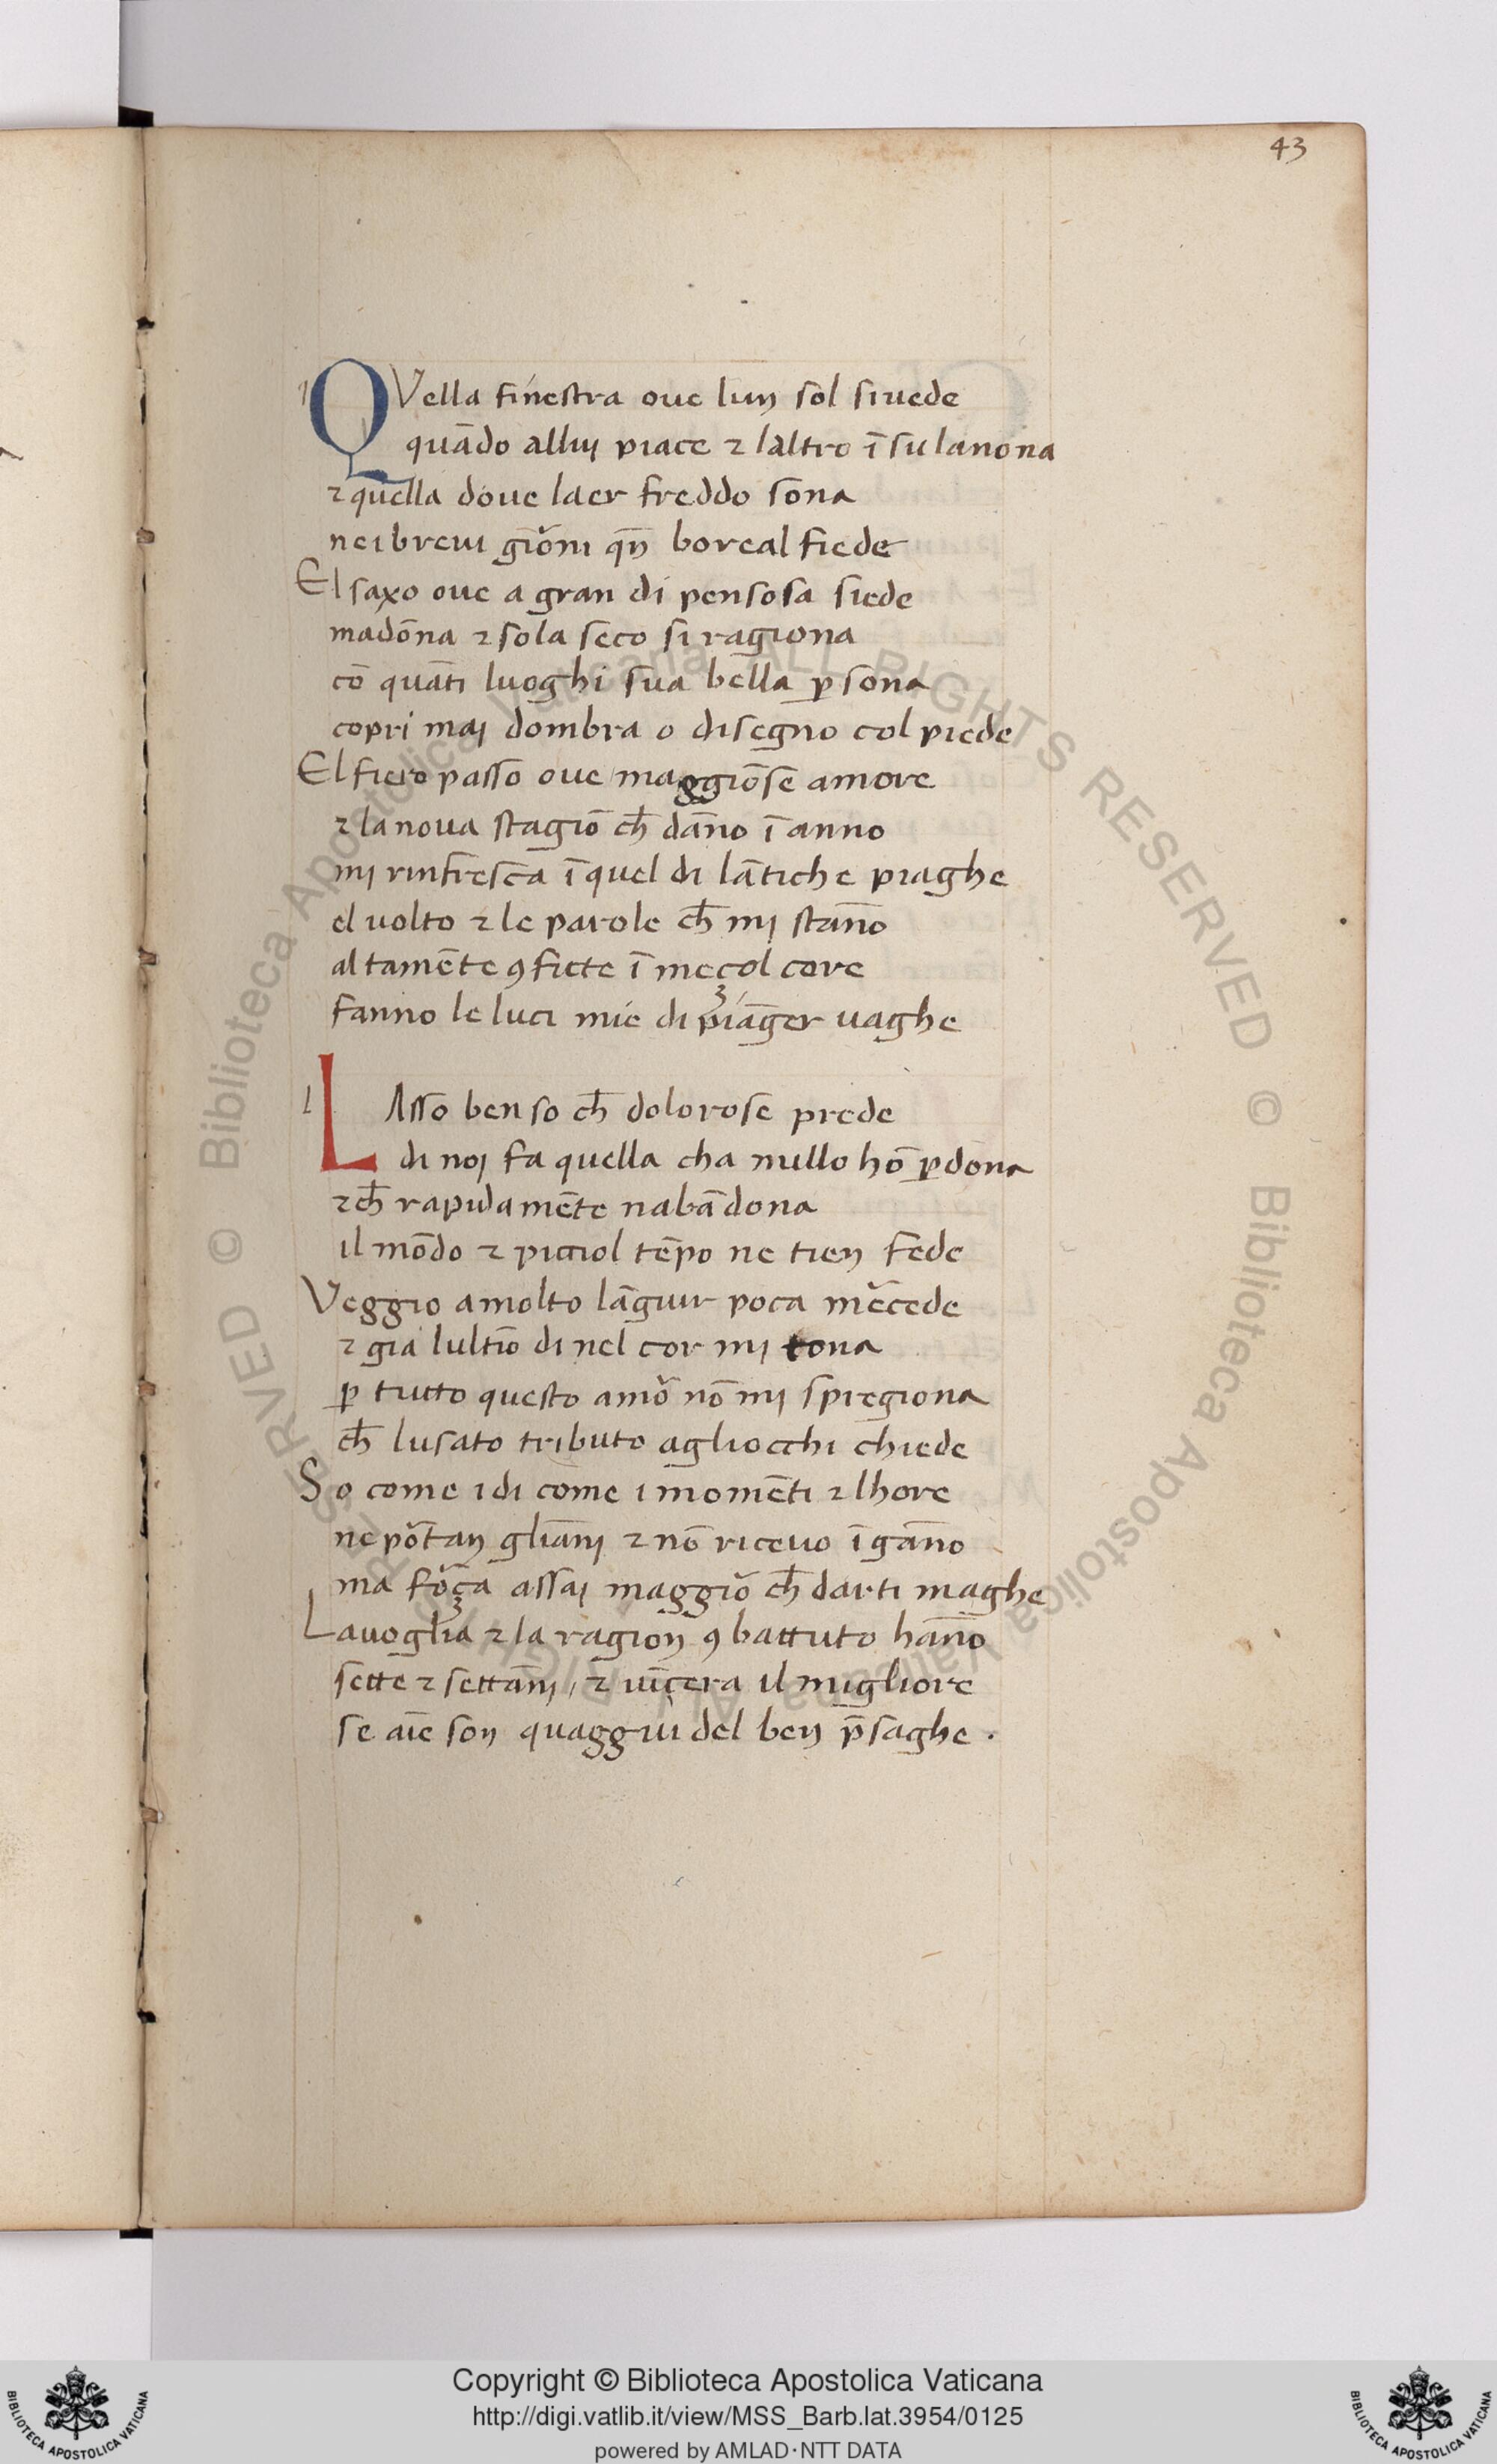 43
QVella finestra oue lun sol siuede
quādo alluj piace ⁊ laltro ī su lanona
⁊ quella doue laer freddo sona
nei breui giorni qn̄ boreal fiede
El saxo oue a gran di pensosa siede
madōna ⁊ sola seco si ragiona
cō quāti luoghi sua bella ꝑsona
copri maj dombra o disegno col piede
El fiero passo oue maggiōse amore
⁊ la noua stagiō ch̄ dāno ī anno
mj rinfresca ī quel di lātiche piaghe
el uolto ⁊ le parole ch̄ mj stāno
altamēte ꝯficte ī meçol core
fanno le luci mie di piāger uaghe
LAsso ben so ch̄ dolorose prede
di noj fa quella cha nullo hō ꝑdona
⁊ ch̄ rapidamēte nabādona
il mōdo ⁊ picciol tēpo ne tien fede
Veggio a molto lāguir poca mc̄ede
⁊ gia lultīo di nel cor mj tona
ꝑ tutto questo amō nō mj spregiona
ch̄ lusato tributo agliocchi chiede
So come i di come i momēti ⁊ lhore
ne pōtan gliānj ⁊ nō riceuo īgāno
ma fōça assaj maggiō ch̄ darti maghe
La uoglia ⁊ la ragion ꝯbattuto hāno
sette ⁊ settānj, ⁊ uīcera il migliore
se aīe son quaggiu del ben p̄saghe .
Copyright © Biblioteca Apostolica Vaticana
http://digi.vatlib.it/view/MSS_Barb.lat.3954/0125
powered by AMLAD·NTT DATA
BIBLIOTECA APOSTOLICA VATICANA
BIBLIOTECA APOSTOLICA VATICANA
© Biblioteca Apostolica Vaticana ALL RIGHTS RESERVED
© Biblioteca Apostolica Vaticana ALL RIGHTS RESERVED